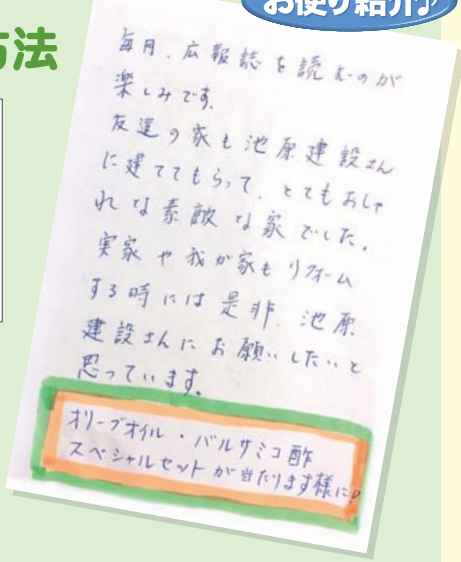 お便り紹介♪
方法
毎月、広報誌を読むのが
楽しみです。
友達の家も池原建設さん
に建ててもらって、とてもおしゃ
れな素敵な家でした。
実家や我が家もリフォーム
する時には是非、池原
建設さんにお願いしたいと
思っています。
オリーブオイル・バルサミコ酢
スペシャルセットが当たります様に!